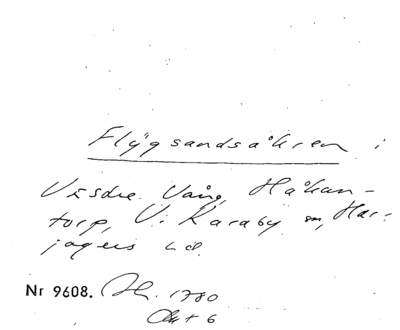 Flygsandsåkren i
Västra Vång, Håkan-
torp, V. Karaby sn, Har-
jagers hd.
Nr 9608. Ih. 1780
Akt 6